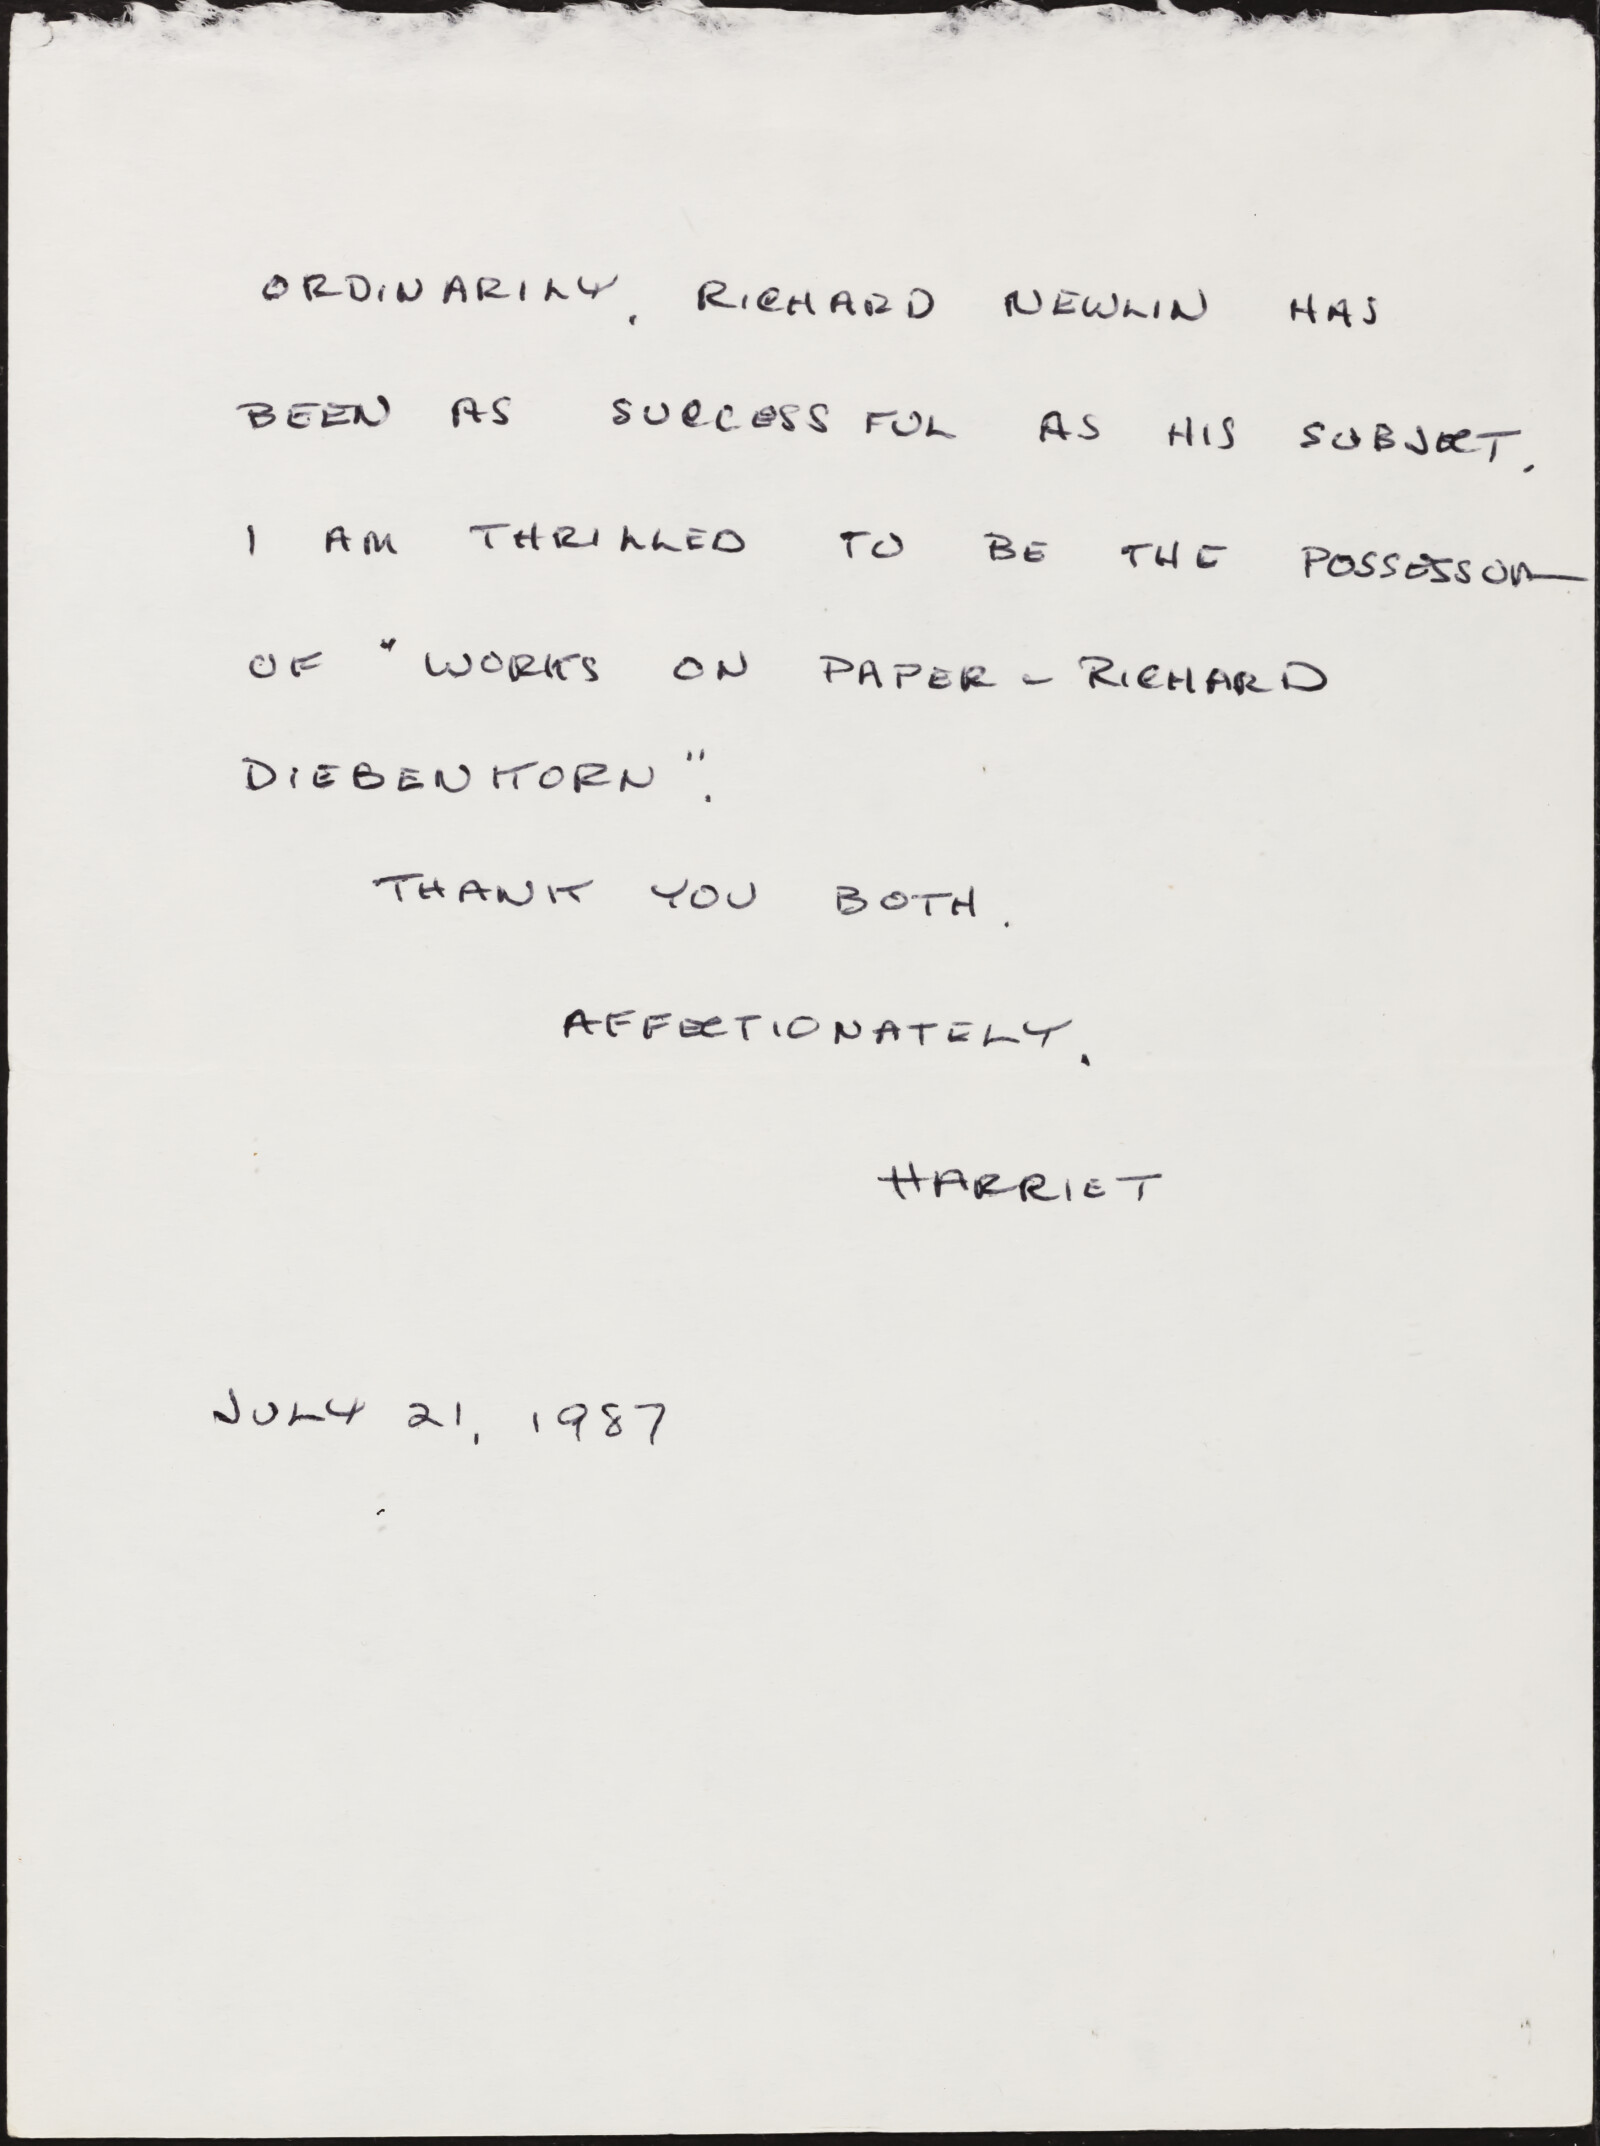 ORDINARILY, RICHARD NEWLIN HAS
BEEN AS SUCCESSFUL AS HIS SUBJECT.
I AM THRILLED TO BE THE POSSESSOR
OF "WORKS ON PAPER - RICHARD
DIEBENKORN".
THANK YOU BOTH.
AFFECTIONATELY,
HARRIET
JULY 21, 1987